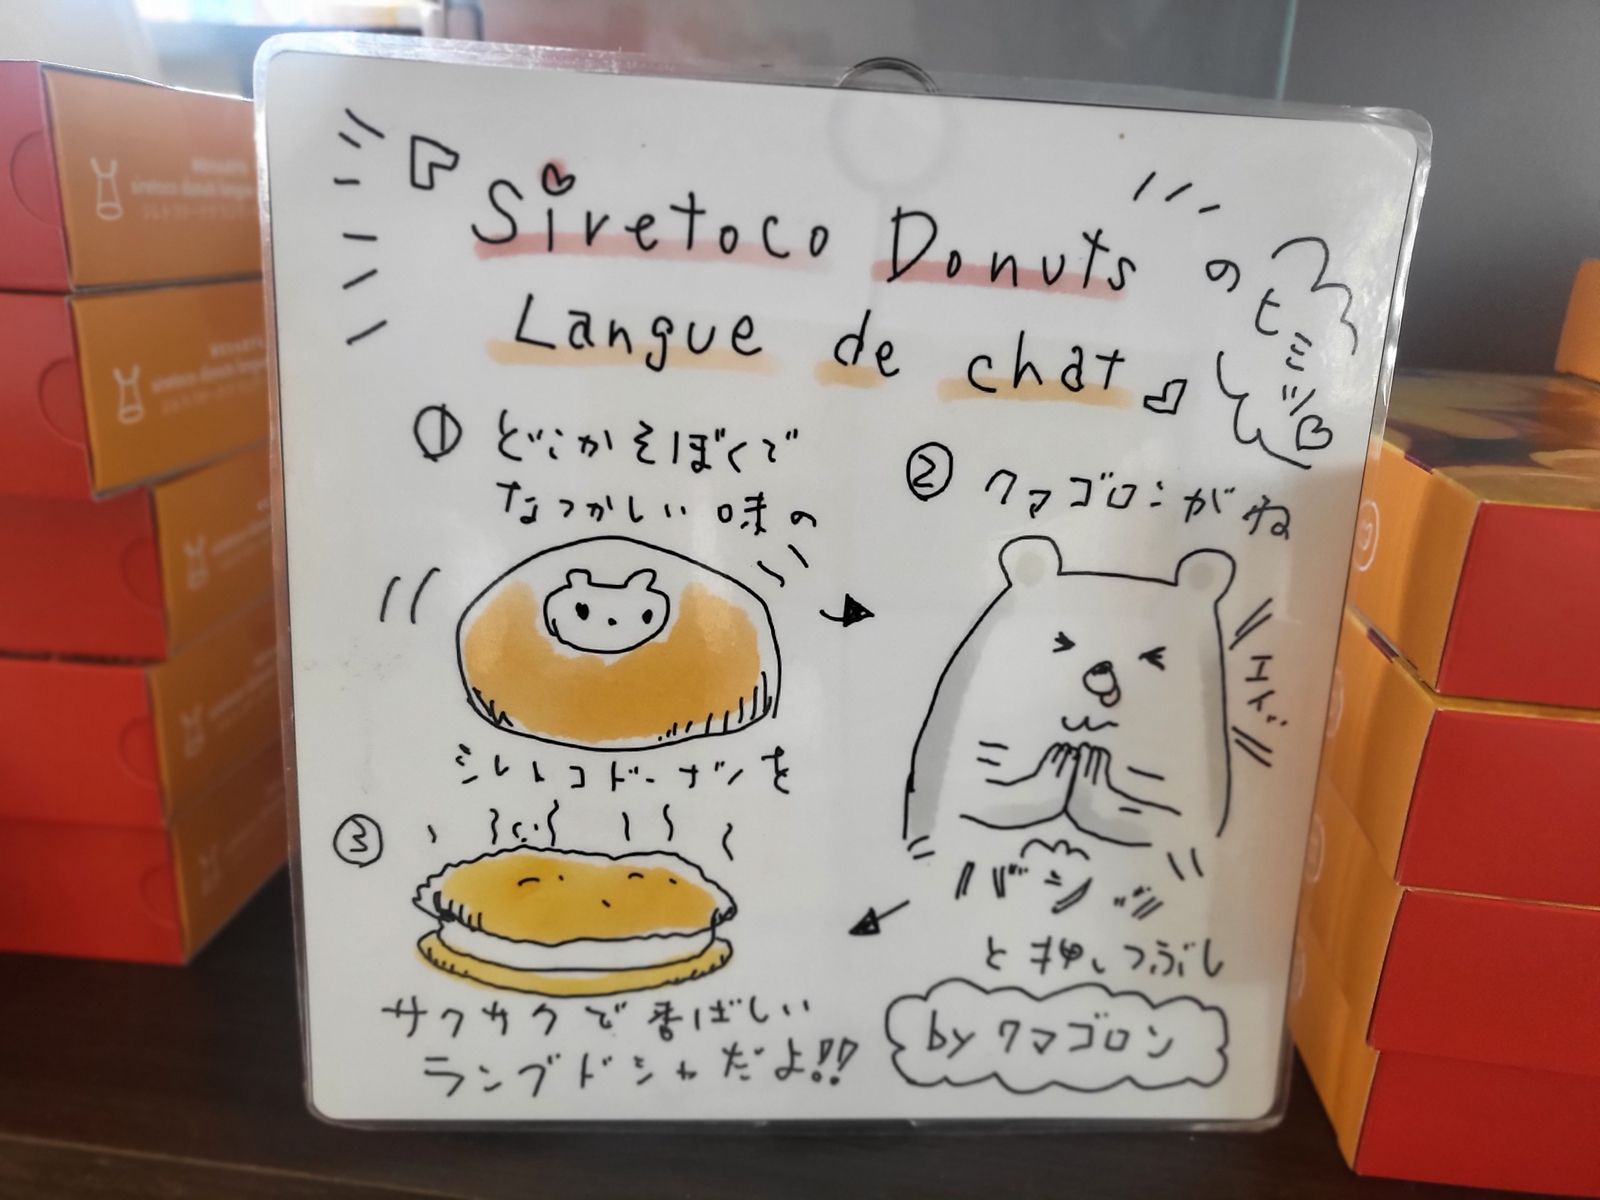 Siretoco Donuts の
ヒミツ
Langue de chat
① どこかそぼくで
なつかしい味の
シレトコドーナツを
② クマゴロンがね
エイッ
バシッ
と押しつぶし
③
サクサクで香ばしい
ラングドシャだよ!!
by クマゴロン